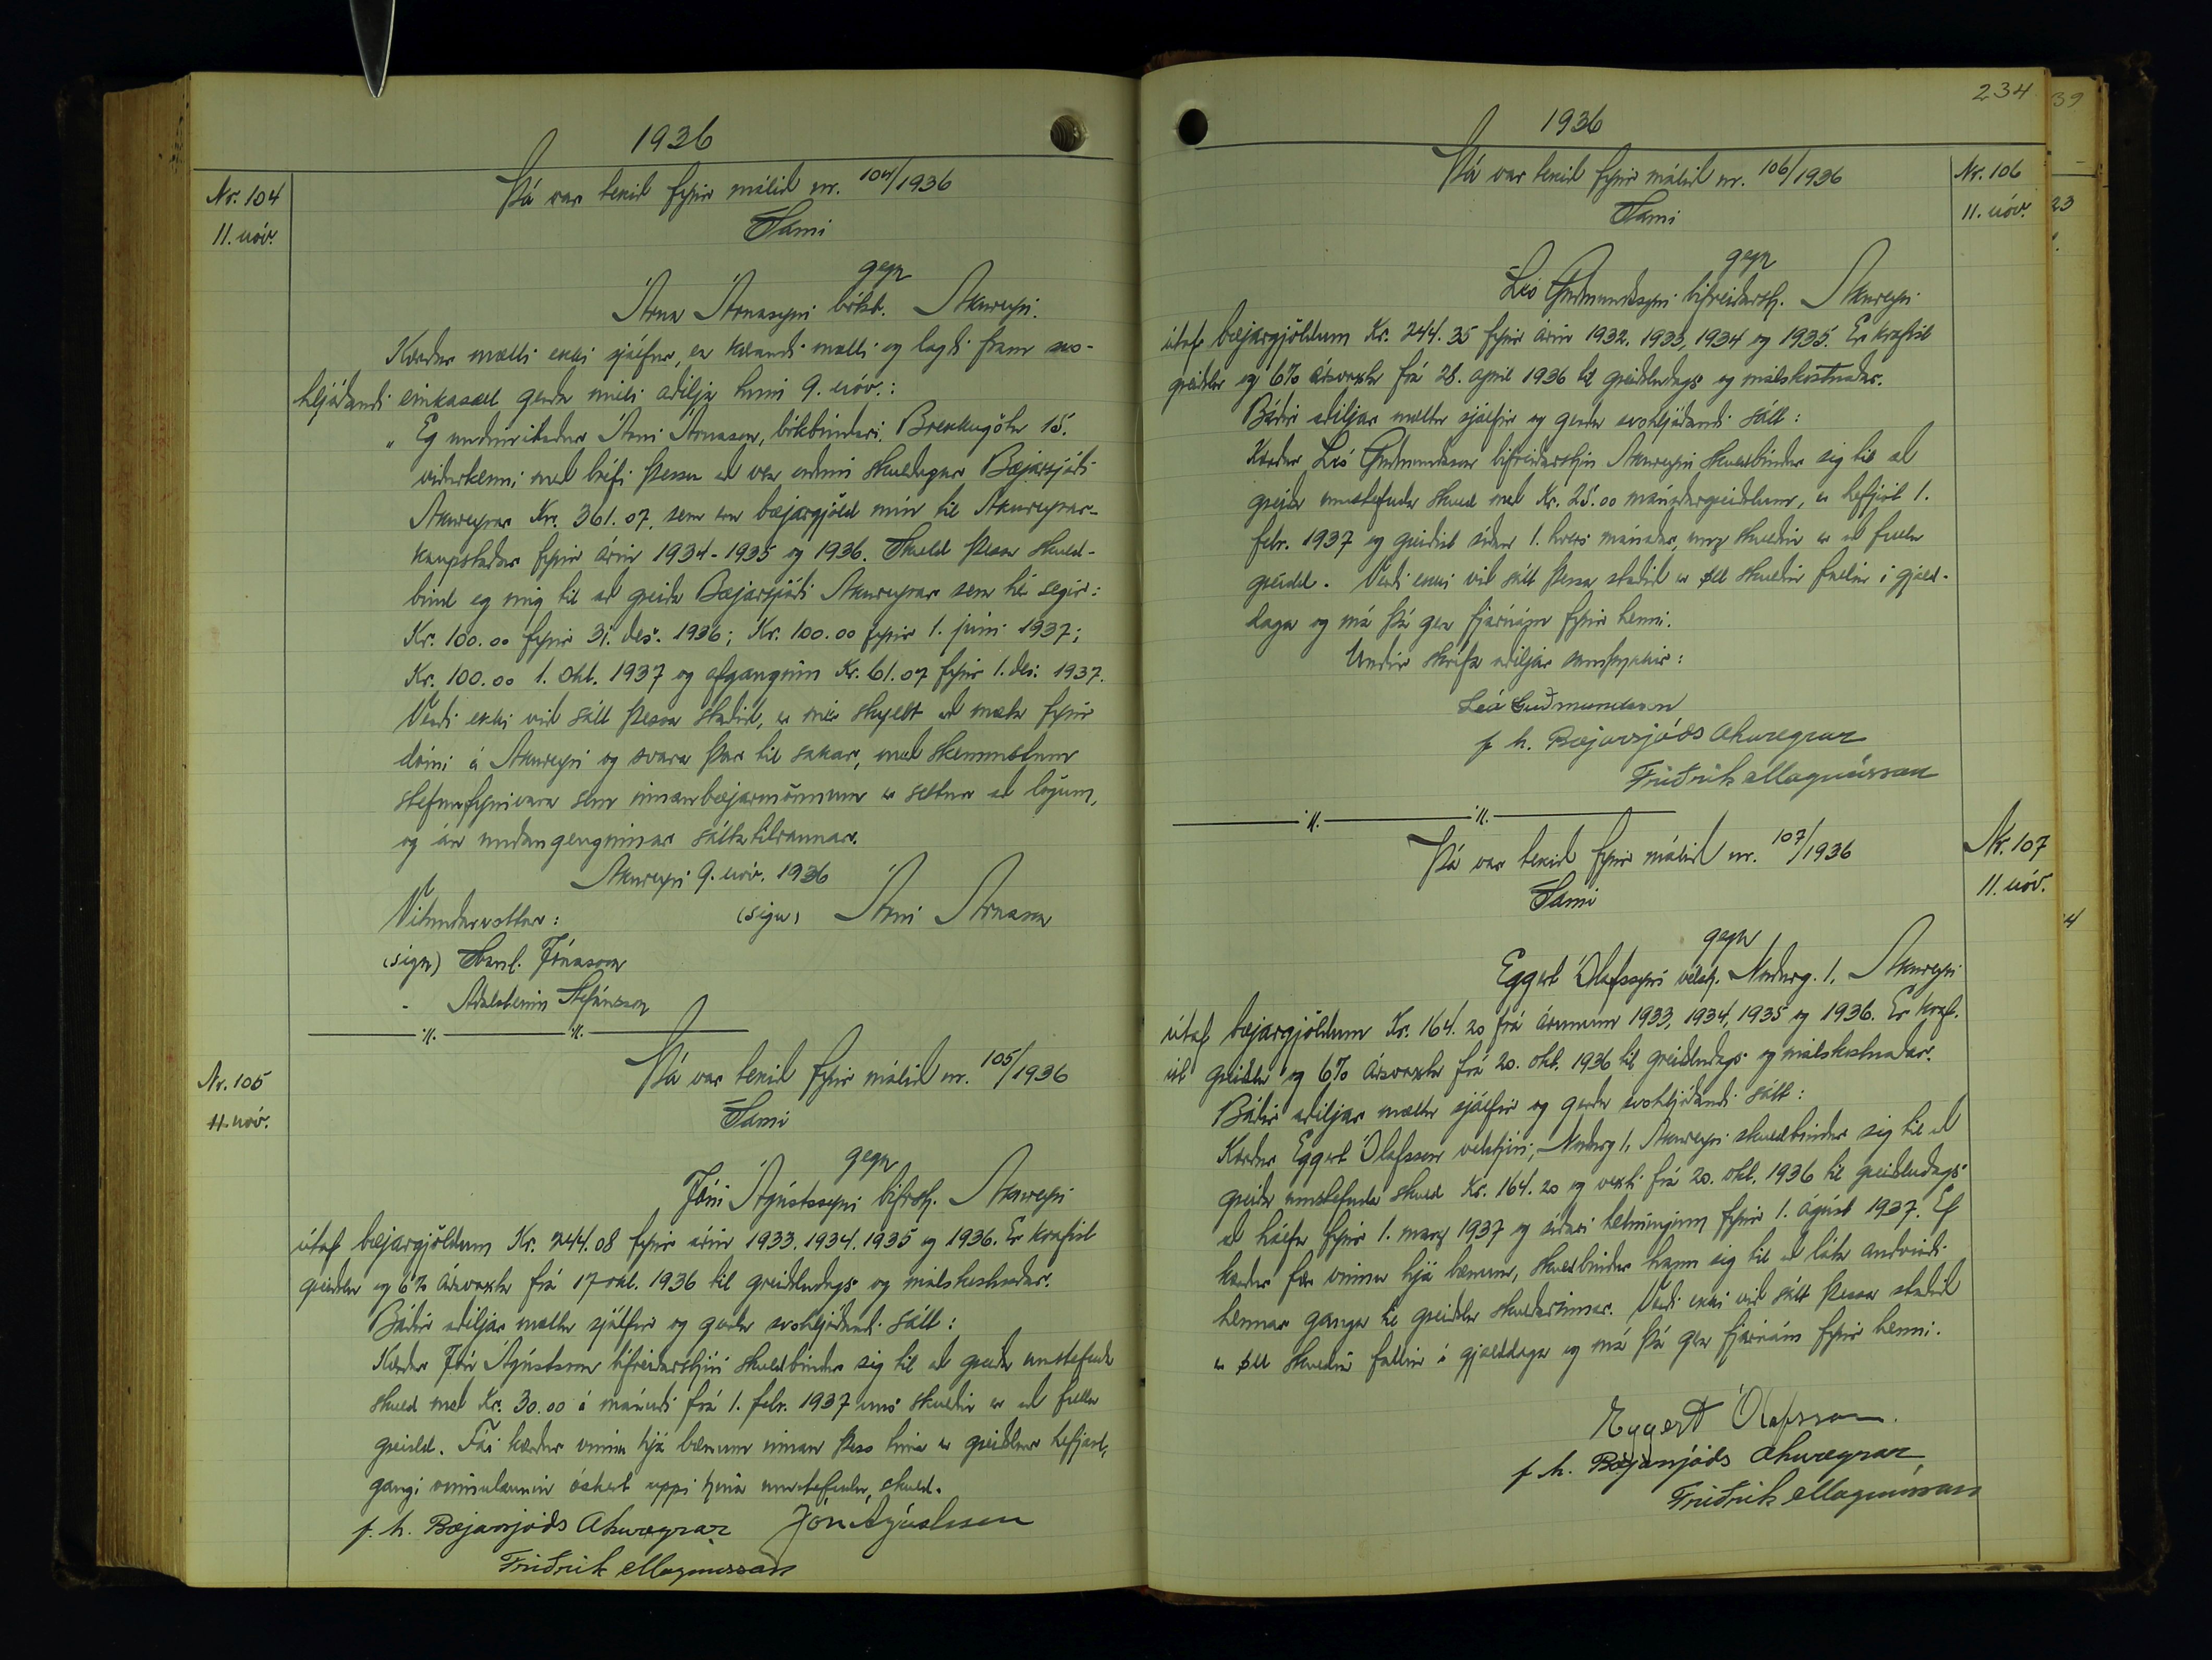 1936
Nr. 104
11. nóv.
Þá var tekið fyrir málið nr. 104/1936
Sami
gegn
Árna Árnasyni bókb. Akureyri.
Kærður mætti ekki sjálfur, en kærandi mætti og lagði fram svo-
hljóðandi einkasátt gerða milli aðilja hinn 9. nóv.:
„Eg undirritaður Árni Árnason, bókbindari, Brekkugötu 15.
viðurkenni með bréfi þessu að vera orðinn skuldugur Bæjarsjóði
Akureyrar Kr. 361.07, sem eru bæjargjöld mín til Akureyrar-
kaupstaðar fyrir árin 1934-1935 og 1936. Skuld þessa skuld-
bind eg mig til að greiða Bæjarsjóði Akureyrar sem hér segir:
Kr. 100.00 fyrir 31. des. 1936; Kr. 100.00 fyrir 1. júní 1937;
Kr. 100.00 1. okt. 1937 og afganginn Kr. 61.07 fyrir 1. des. 1937.
Verði ekki við sátt þessa staðið, er mér skylt að mæta fyrir
dómi á Akureyri og svara þar til sakar, með skemmstum
stefnufyrirvara sem innanbæjarmönnum er settur að lögum,
og án undangenginnar sáttatilraunar.
Akureyri 9. nóv. 1936
Vitundarvottar: (sign) Árni Árnason
(sign) Jónasson
- Aðalsteinn Stefánsson
Nr. 105
11. nóv.
Þá var tekið fyrir málið nr. 105/1936
Sami
gegn
Jóni Ágústssyni bifrstj. Akureyri
útaf bæjargjöldum Kr. 244.08 fyrir árin 1933. 1934. 1935 og 1936. Er krafist
greiðslu og 6% ársvaxta frá 17 okt. 1936 til greiðsludags og málskostnaðar.
Báðir aðiljar mættu sjálfir og gerðu svohljóðandi sátt:
Kærður Jón Ágústsson bifreiðarstjóri skuldbindur sig til að greiða umstefnda
skuld með Kr. 30.00 á mánuði frá 1. febr. 1937 uns skuldin er að fullu
greidd. Fái kærður vinnu hjá bænum innan þess tíma er greiðslur hefjast,
gangi vinnulaunin óskert uppí hina umstefndu skuld.
f. h. Bæjarsjóðs Akureyrar Jón Ágústsson
Friðrik Magnússon
234
1936
Nr. 106
11. nóv.
Þá var tekið fyrir málið nr. 106/1936
Sami
gegn
Leó Guðmundssyni bifreiðarstj. Akureyri
útaf bæjargjöldum Kr. 244.35 fyrir árin 1932. 1933, 1934 og 1935. Er krafist
greiðslu og 6% ársvaxta frá 28. apríl 1936 til greiðsludags og málskostnaðar.
Báðir aðiljar mættu sjálfir og gerðu svohljóðandi sátt:
Kærður Leó Guðmundsson bifreiðarstjóri Akureyri skuldbindur sig til að
greiða umstefnda skuld með Kr. 25.00 mánaðargreiðslum, er hefjist 1.
febr. 1937 og greiðist síðan 1. hvers mánaðar, unz skuldin er að fullu
greidd. Verði ekki við sátt þessa staðið er öll skuldin fallin í gjald-
daga og má þá gera fjárnám fyrir henni.
Undir skrifa aðiljar samþykkir:
Leó Guðmundsson
f. h. Bæjarsjóðs Akureyrar
Friðrik Magnússon
Nr. 107
11. nóv.
Þá var tekið fyrir málið nr. 107/1936
Sami
gegn
Eggert Ólafssyni vélstj. Norðurg. 1, Akureyri
útaf bæjargjöldum Kr. 164.20 frá árunum 1933, 1934, 1935 og 1936. Er kraf-
ist greiðslu og 6% ársvaxta frá 20. okt. 1936 til greiðsludags og málskostnaðar.
Báðir aðiljar mættu sjálfir og gerðu svohljóðandi sátt:
Kærður Eggert Ólafsson vélstjóri, Norðurg 1, Akureyri skuldbindur sig til að
greiða umstefnda skuld Kr. 164.20 og vexti frá 20. okt. 1936 til greiðsludags
að hálfu fyrir 1. marz 1937 og síðari helminginn fyrir 1. ágúst 1937. Ef
kærður fær vinnu hjá bænum, skuldbindur hann sig til að láta andvirði
hennar ganga til greiðslu skuldarinnar. Verði ekki við sátt þessa staðið
er öll skuldin fallin í gjalddaga og má þá gera fjárnám fyrir henni.
Eggert Ólafsson.
f. h. Bæjarsjóðs Akureyrar
Friðrik Magnússon
39
23
4